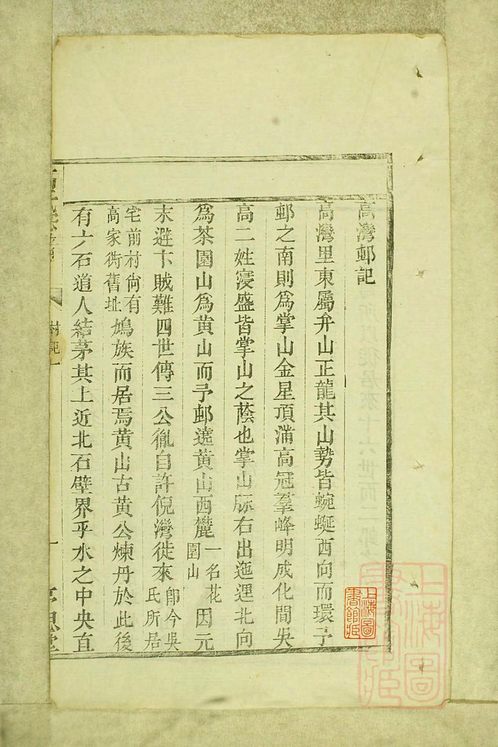 高灣邨記
高灣里東屬弁山正龍其山勢皆蜿蜒西向而環予
邨之南則爲掌山金星頂滿高冠羣峰明成化間吳
高二姓寖盛皆掌山之蔭也掌山脈右出迤邐北向
爲茶園山爲黄山而予邨遶黄山西麓一名花園山因元
末避卞賊難四世傳三公徙自許倪灣徙來卽今吳氏所居
宅前村尙有高家衖舊址鳩族而居焉黄山古黄公煉丹於此後
有六石道人結茅其上近北石壁界乎水之中央直
村記
上海圖書館藏